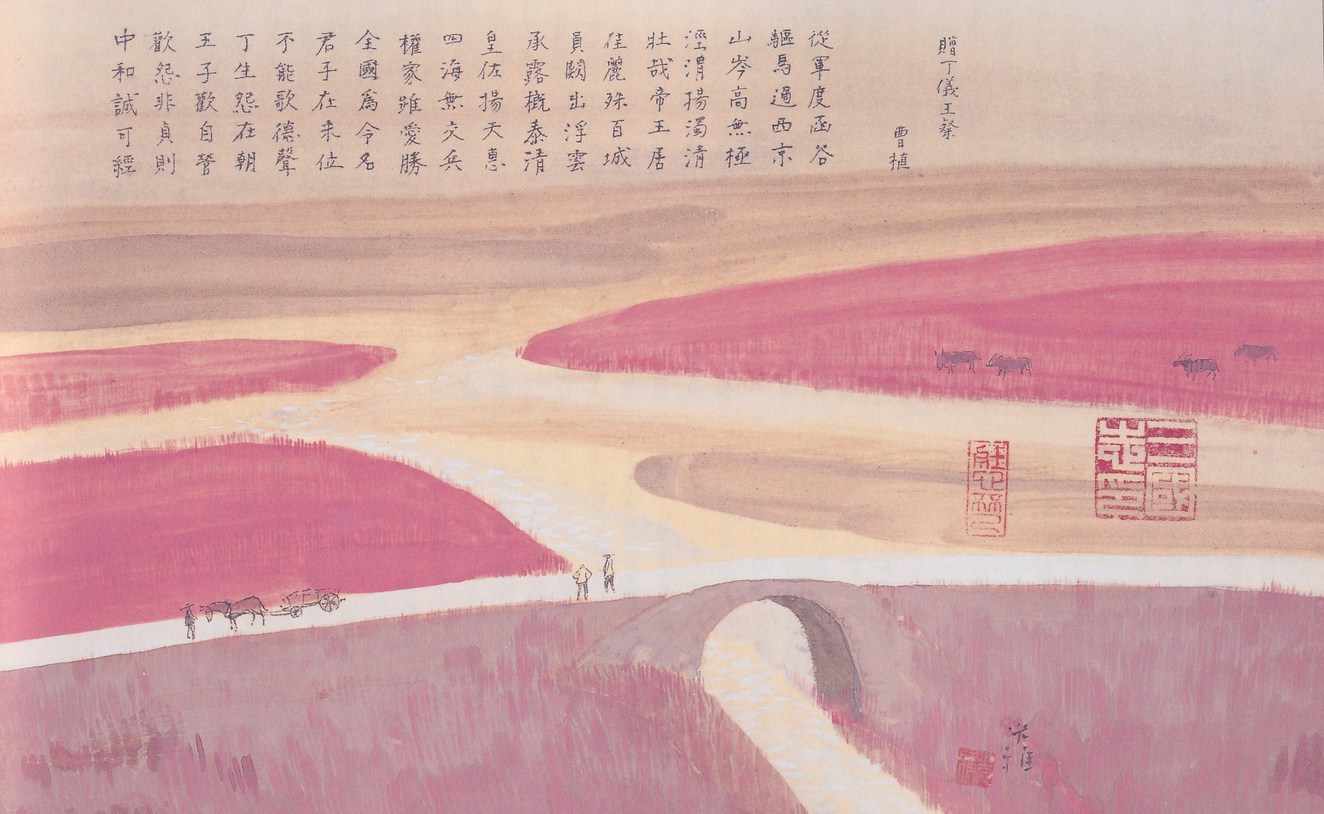 贈丁儀王粲
曹植
從軍度函谷
驅馬過西京
山岑高無極
涇渭揚濁清
壯哉帝王居
佳麗殊百城
員闕出浮雲
承露概泰清
皇佐揚天惠
四海無交兵
權家雖愛勝
全國爲令名
君子在末位
不能歌德聲
丁生怨在朝
王子歡自營
歡怨非貞則
中和誠可經
三國志印